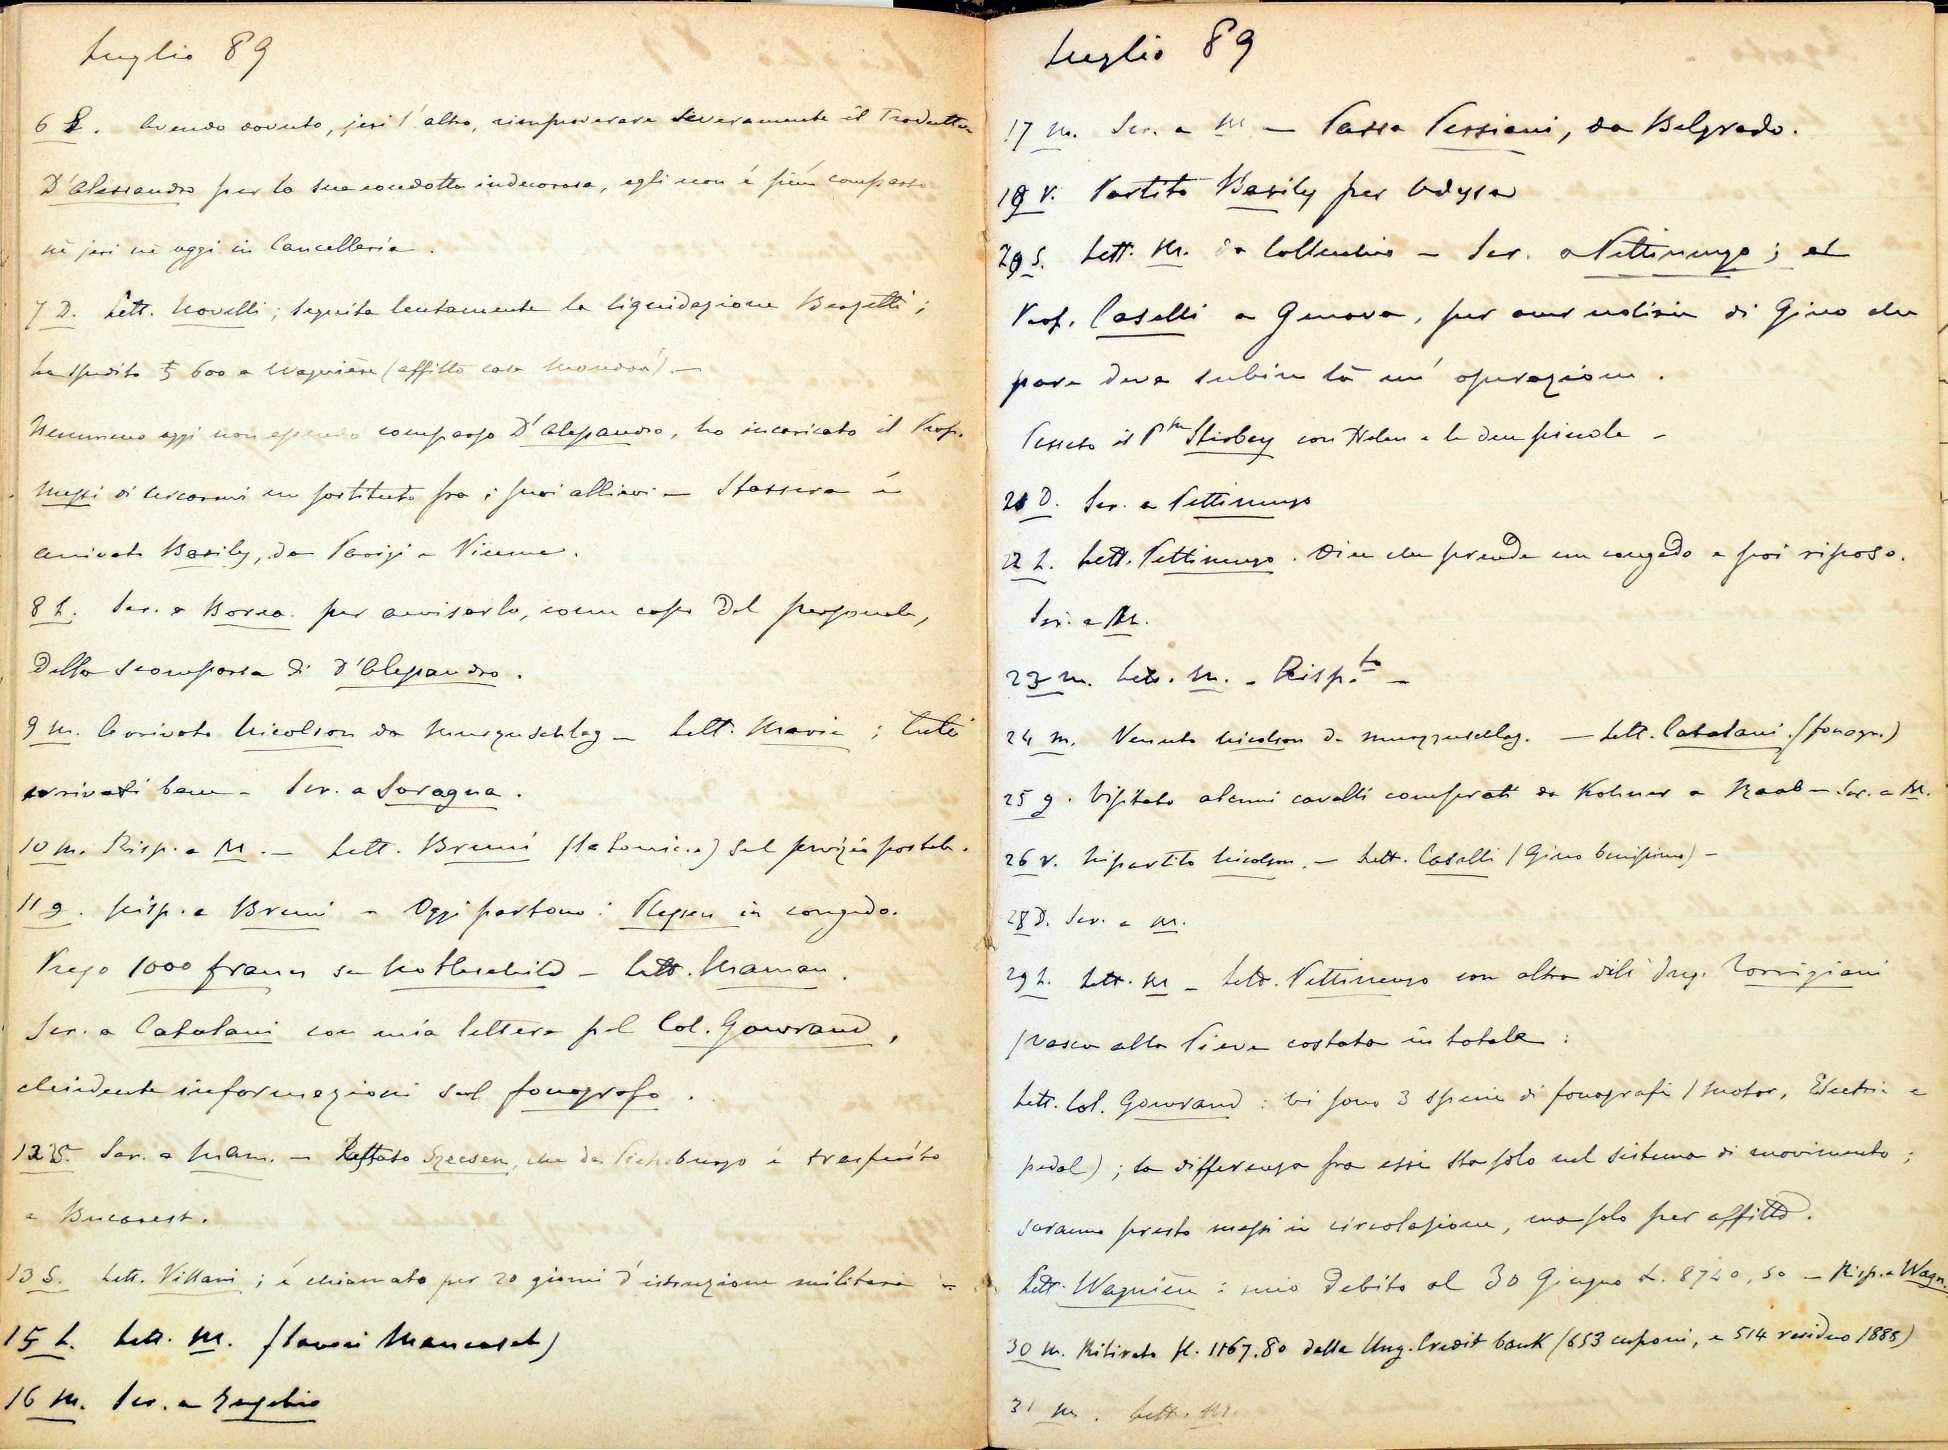 Luglio 89
6 S. Avendo dovuto, jeri l'altro, rimproverare severamente il Traduttore
D'Alessandro per la sua condotta indecorosa, egli non è più comparso
nè jeri nè oggi in Cancelleria.
7 D. Lett. Novelli; seguita lentamente la liquidazione
ha spedito 600 a Wagnière (affitto casa Mondovì) —
Nemmeno oggi non essendo comparso D'Alessandro, ho incaricato il Prof.
Messi di cercarmi un sostituto fra i suoi allievi — Stassera è
arrivato Basily, da Parigi e Vienna.
8 L. Scr. a Borea per avvisarlo, come capo del personale,
della scomparsa di D'Alessandro.
9 M. Arrivato Nicolson da Murzzuschlag — Lett. Maria; tutti
arrivati bene — Scr. a Soragna.
10 M. Risp. a M. — Lett. Bruni sul servizio postale.
11 g. Risp. a Bruni — Oggi partono: Plessen in congedo.
Prego 1000 francs su Rothschild — Lett. Maman.
Scr. a Catalani con mia lettera pel Col. Gouraud,
chiedente informazioni sul fonografo.
12 Scr. a Mam. — Szecsen, che da Pietroburgo è trasferito
a Bucarest.
13 S. Lett. Villani; è chiamato per 20 giorni d'istruzione militare —
15 L. Lett. M. (lavori
16 M. Scr. a
Luglio 89
17 M. Scr. a M — Passa Tessiani, da Belgrado.
19 V. Partito Basily per Odessa
20 S. Lett. M. da — Scr. a Pettinengo; al
Prof. Caselli a Genova, per aver notizie di Gino che
pare deva subire là un' operazione.
il Stirbey con Helen e le due piccole —
21 D. Scr. a Pettinengo
22 L. Lett. Pettinengo. Dice che prende un congedo e poi riposo.
Scr. a M.
23 M. Lett. M. — Risp.to —
24 M. Venuto Nicolson da Murzzuschlag. — Lett. Catalani (fonogr.)
25 g. Visitato alcuni cavalli comperati da Kohner a Raab — Scr. a M.
26 V. Ripartito Nicolson. — Lett. Caselli (Gino benissimo) —
28 D. Scr. a M.
29 L. Lett. M — Lett. Pettinengo con altra dell' Ing. Torrigiani
(vasca alla Pieve costata in totale:
Lett. Col. Gouraud: vi sono 3 specie di fonografi (Motor, Electric e
pedal); la differenza fra essi sta solo nel sistema di movimento;
saranno presto messi in circolazione, ma solo per affitto.
Lett. Wagnière: mio debito al 30 Giugno L. 8740,50 — Risp. a Wagn.
30 M. Ritirato fl. 1167.80 dalla Ung. Credit bank (653 cuponi, e 514 residuo 1888)
31 M. Lett. M.